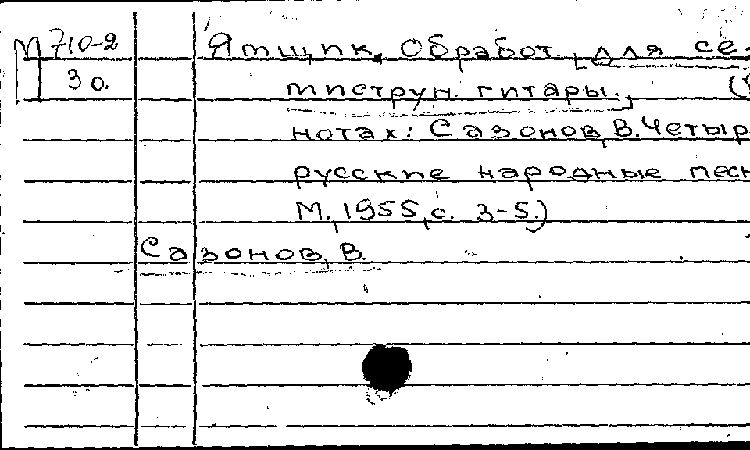 М 710-2
30.
Ямщик. Обработ. [для се-
миструн. гитары.] (В
нотах: Сазонов, В. Четыр
русские народные песн
М., 1955, с. 3-5.)
Сазонов, В.